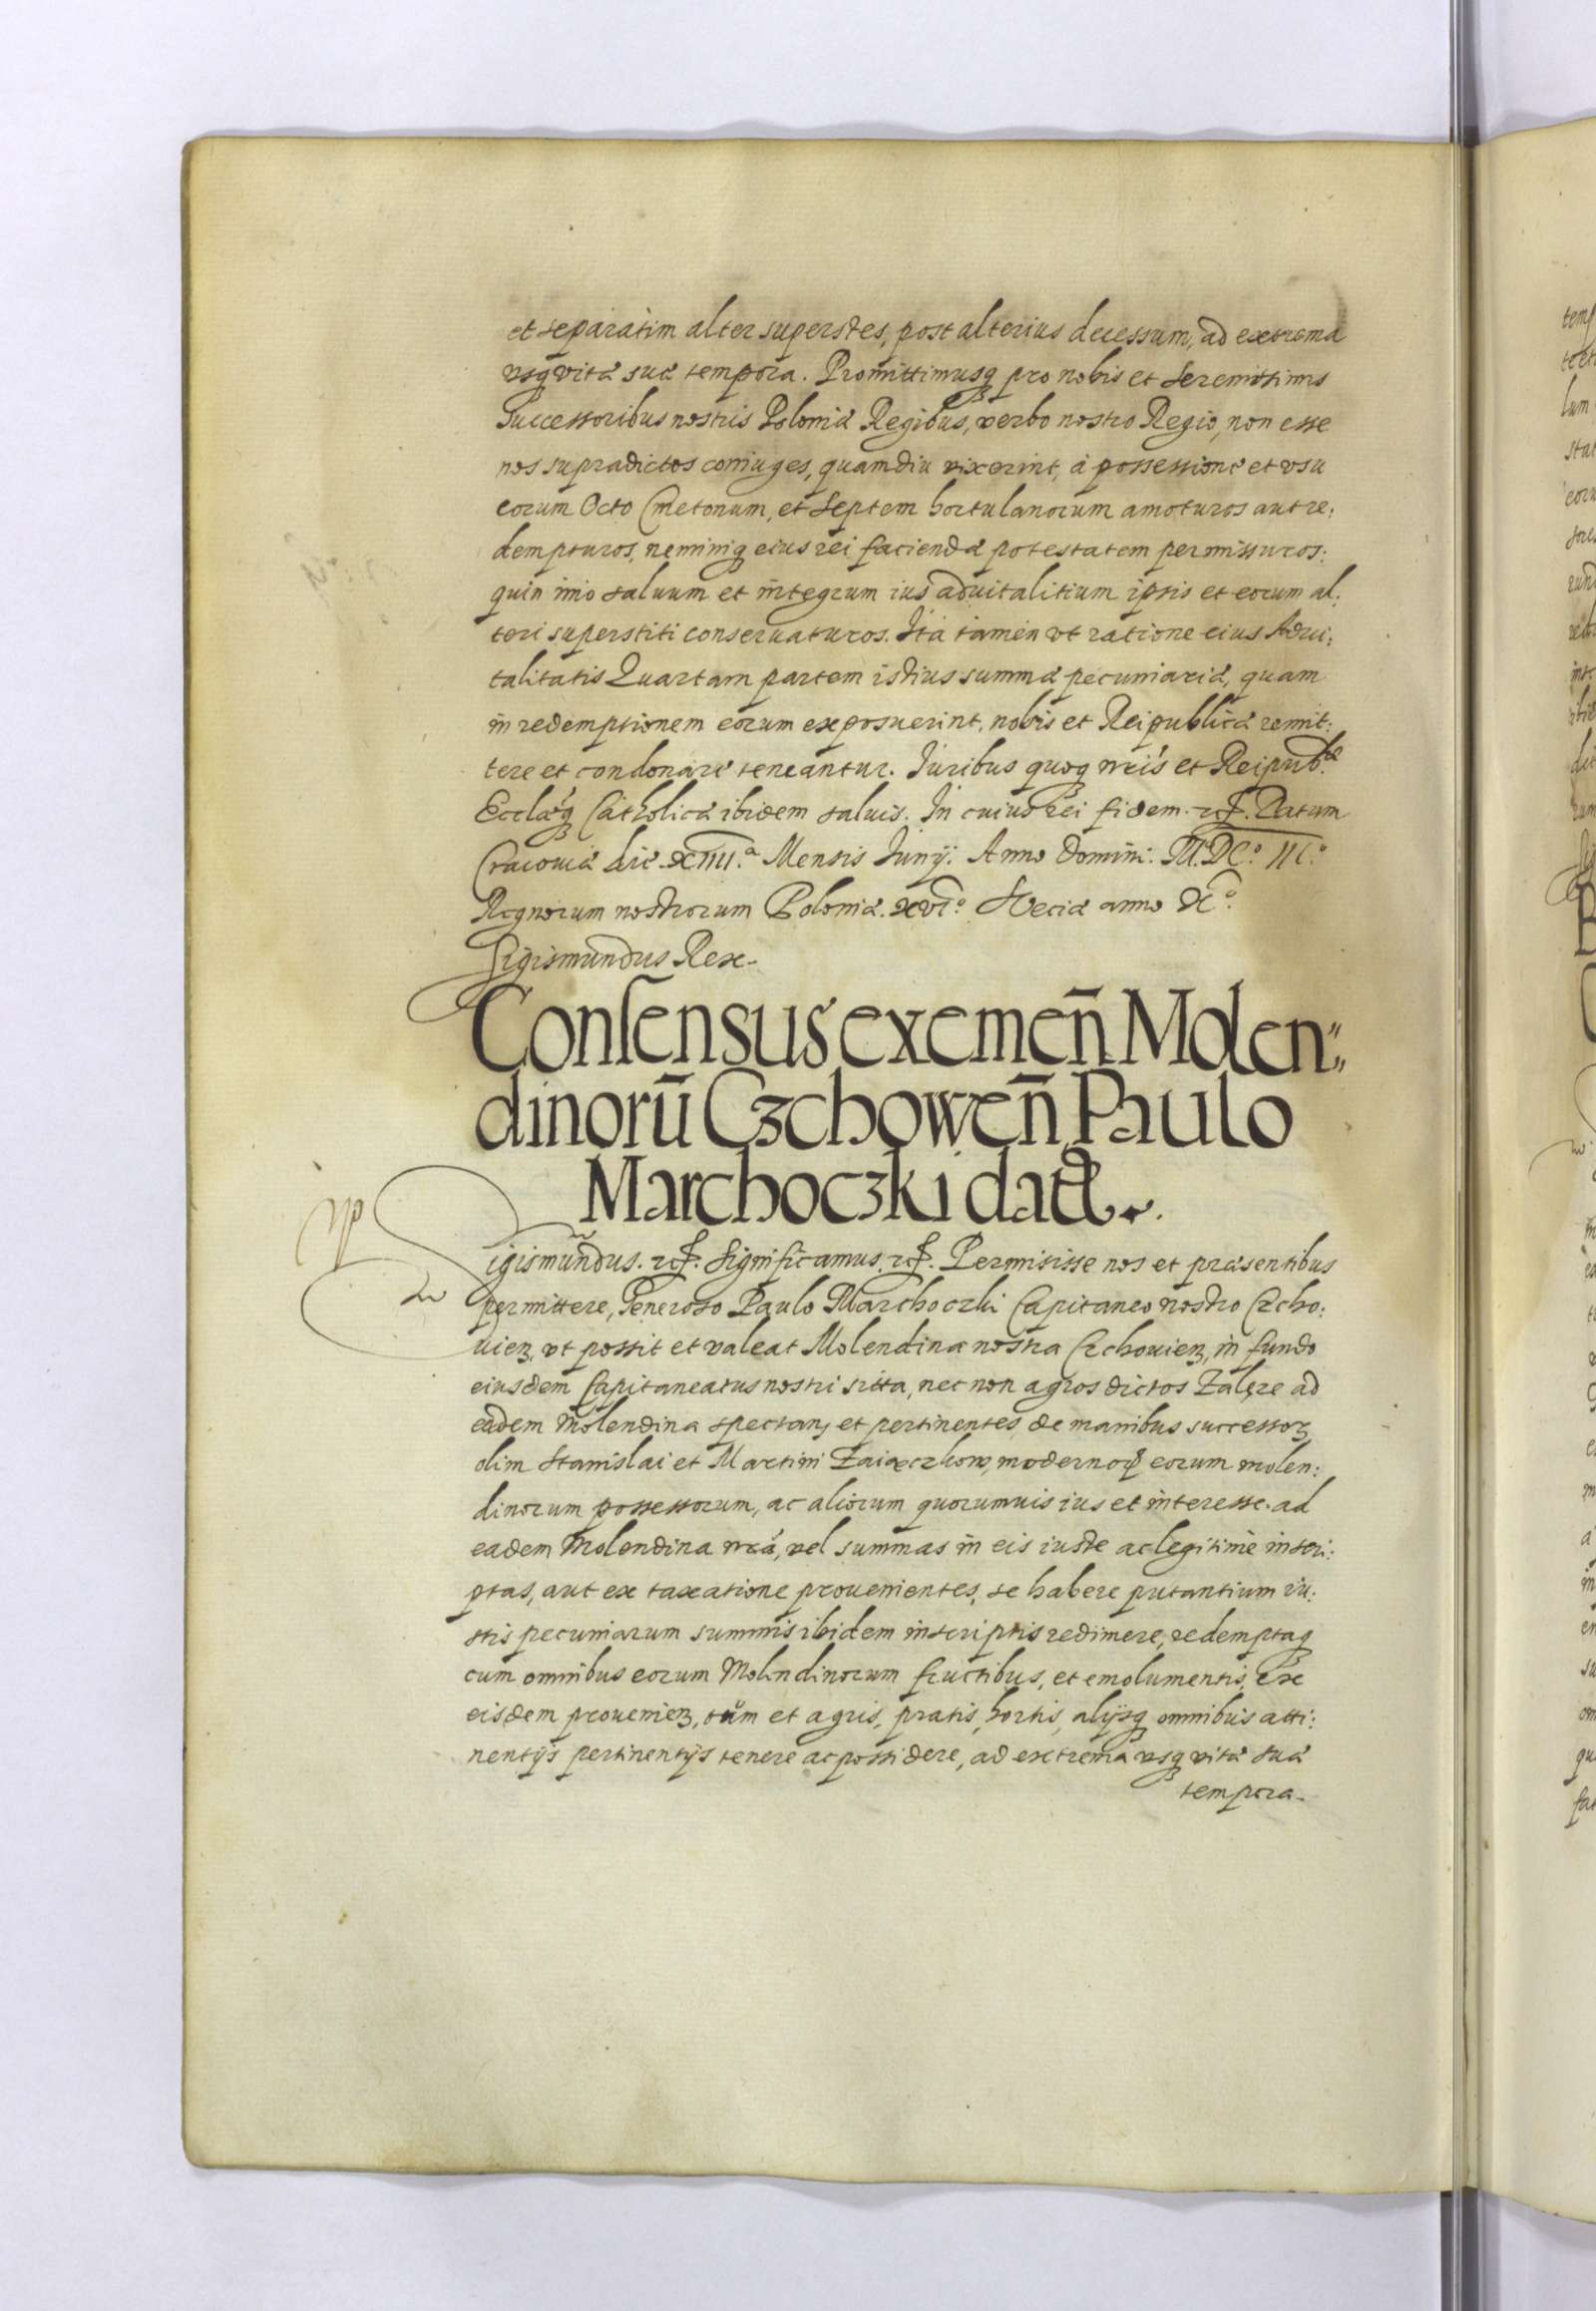 et separatim alter superstes, post alterius decessum, ad extrema
vsq vitæ suæ tempora. Promittimusq pro nobis et Serenissimis
Successoribus nostris Poloniæ Regibus, verbo nostro Regio, non esse
nos supradictos coniuges, quamdiu vixerint, à possessione et vsu
eorum Octo Cmetonum, et Septem hortulanorum amoturos aut re:
dempturos, neminiq eius rei faciendæ potestatem permissuros:
quin imo saluum et integrum ius aduitalitium ipsis et eorum al:
teri superstiti conseruaturos. Ita tamen vt ratione eius Adui:
talitatis Quartam partem istius summæ pecuniariæ, quam
in redemptionem eorum exposuerint, nobis et Reipublicæ remit:
tere et condonare teneantur. Iuribus quoq nris et Reipub.cæ
Ecclæq Catholicæ ibidem saluis. In cuius rei fidem. etc. Datum
Cracouiæ die XIIII.a Mensis Iunij. Anno Domini. M.DC.o III.o
Regnorum nostrorum Poloniæ. XVI.o Sveciæ anno X.o
Sigismundus Rex.
Consensus exemen̄ Molen:
dinorū Czchowen̄ Paulo
Marchoczki dat9.
Sigismundus. etc. Significamus. etc. Permisisse nos et præsentibus
permittere, Generoso Paulo Marchoczki Capitaneo nostro Czcho:
uien, vt possit et valeat Molendina nostra Czchouien, in fundo
eiusdem Capitaneatus nostri sitta, nec non agros dictos Zalęże ad
eadem Molendina spectan, et pertinentes, de manibus successor
olim Stanislai et Martini Zaiączkow, modernorq eorum molen:
dinorum possessorum, ac aliorum quorumuis ius et interesse ad
eadem Molendina nra, vel summas in eis iuste ac legitimè inscri:
ptas, aut ex taxatione prouenientes, se habere putantium iu:
stis pecuniarum summis ibidem inscriptis redimere, redemptaq
cum omnibus eorum Molendinorum fructibus, et emolumentis, ex
eisdem prouenien, tum et agris, pratis, hortis, alijsq omnibus atti:
nentijs pertinentijs tenere ac possidere, ad extrema vsq vitæ suæ
tempora.